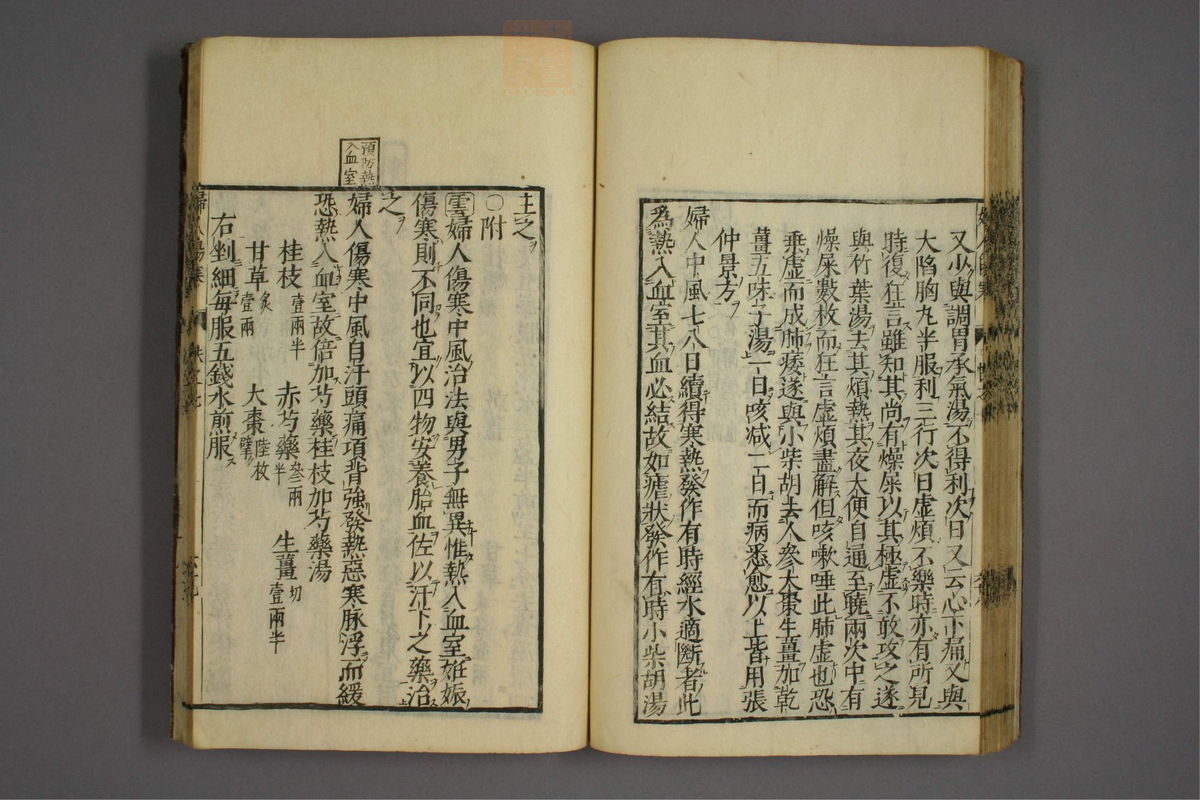 又少與調胃承氣湯不得利次日又云心下痛又與
大陷胸丸半服利三行次日虛煩不樂時亦有所見
時復狂言雖知其尚有燥屎以其極虛不敢攻之遂
與竹葉湯去其煩熱其夜大便自通至曉兩次中有
燥屎數枚而狂言虛煩盡解但咳嗽唾此肺虛也恐
乗虛而成肺痿遂與小柴胡去人參大棗生薑加乾
薑五味子湯一日咳减二日而病悉愈以上皆用張
仲景方
婦人中風七八日續得寒熱發作有時經水適斷者此
為熱入血室其血必結故如瘧狀發作有時小柴胡湯
主之
○附
雲婦人傷寒中風治法與男子無異惟熱入血室姙娠
傷寒則不同也宜以四物安養胎血佐以汗下之藥治
之
預防熱
入血室
婦人傷寒中風自汗頭痛項背強發熱惡寒脉浮而緩
恐熱入血室故倍加芍藥桂枝加芍藥湯
桂枝壹兩半 赤芍藥叄兩半 生薑切壹兩半
甘草炙壹兩 大棗陸枚擘
右剉細每服五錢水煎服